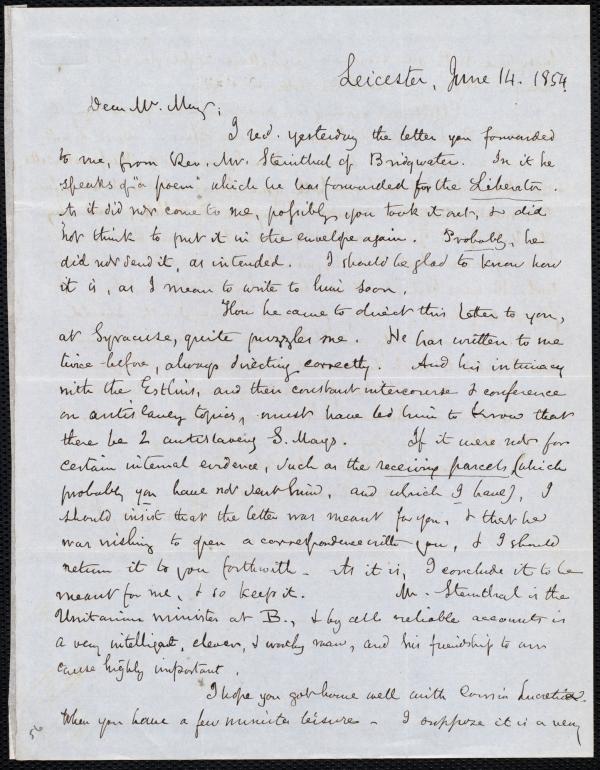 Leicester, June 14. 1854
Dear Mr. May;
I recd. yesterday the letter you forwarded
to me, from Rev. Mr. Steinthal of Bridgwater. In it he
speaks of "a poem" which he has forwarded for the Liberator.
As it did not come to me, possibly you took it out, & did
not think to put it in the envelope again. Probably, he
did not send it, as intended. I should be glad to know how
it is, as I mean to write to him soon.
How he came to direct this letter to you,
at Syracuse, quite puzzles me. He has written to me
twice before, always directing correctly. And his intimacy
with the Estlins, and their constant intercourse & conference
on antislavery topics, must have led him to know that
there be 2 antislavery S. Mays. If it were not for
certain internal evidence, such as the receiving parcels, (which
probably you have not sent him, and which I have), I
should insist that the letter was meant for you, & that he
was wishing to open a correspondence with you, & I should
return it to you forthwith. As it is, I conclude it to be
meant for me, & so keep it. Mr. Steinthal is the
Unitarian minister at B., & by all reliable accounts is
a very intelligent, clever, & worthy man, and his friendship to our
cause highly important.
I hope you got home well with Cousin Lucretia.
When you have a few minutes leisure - I suppose it is a very
56